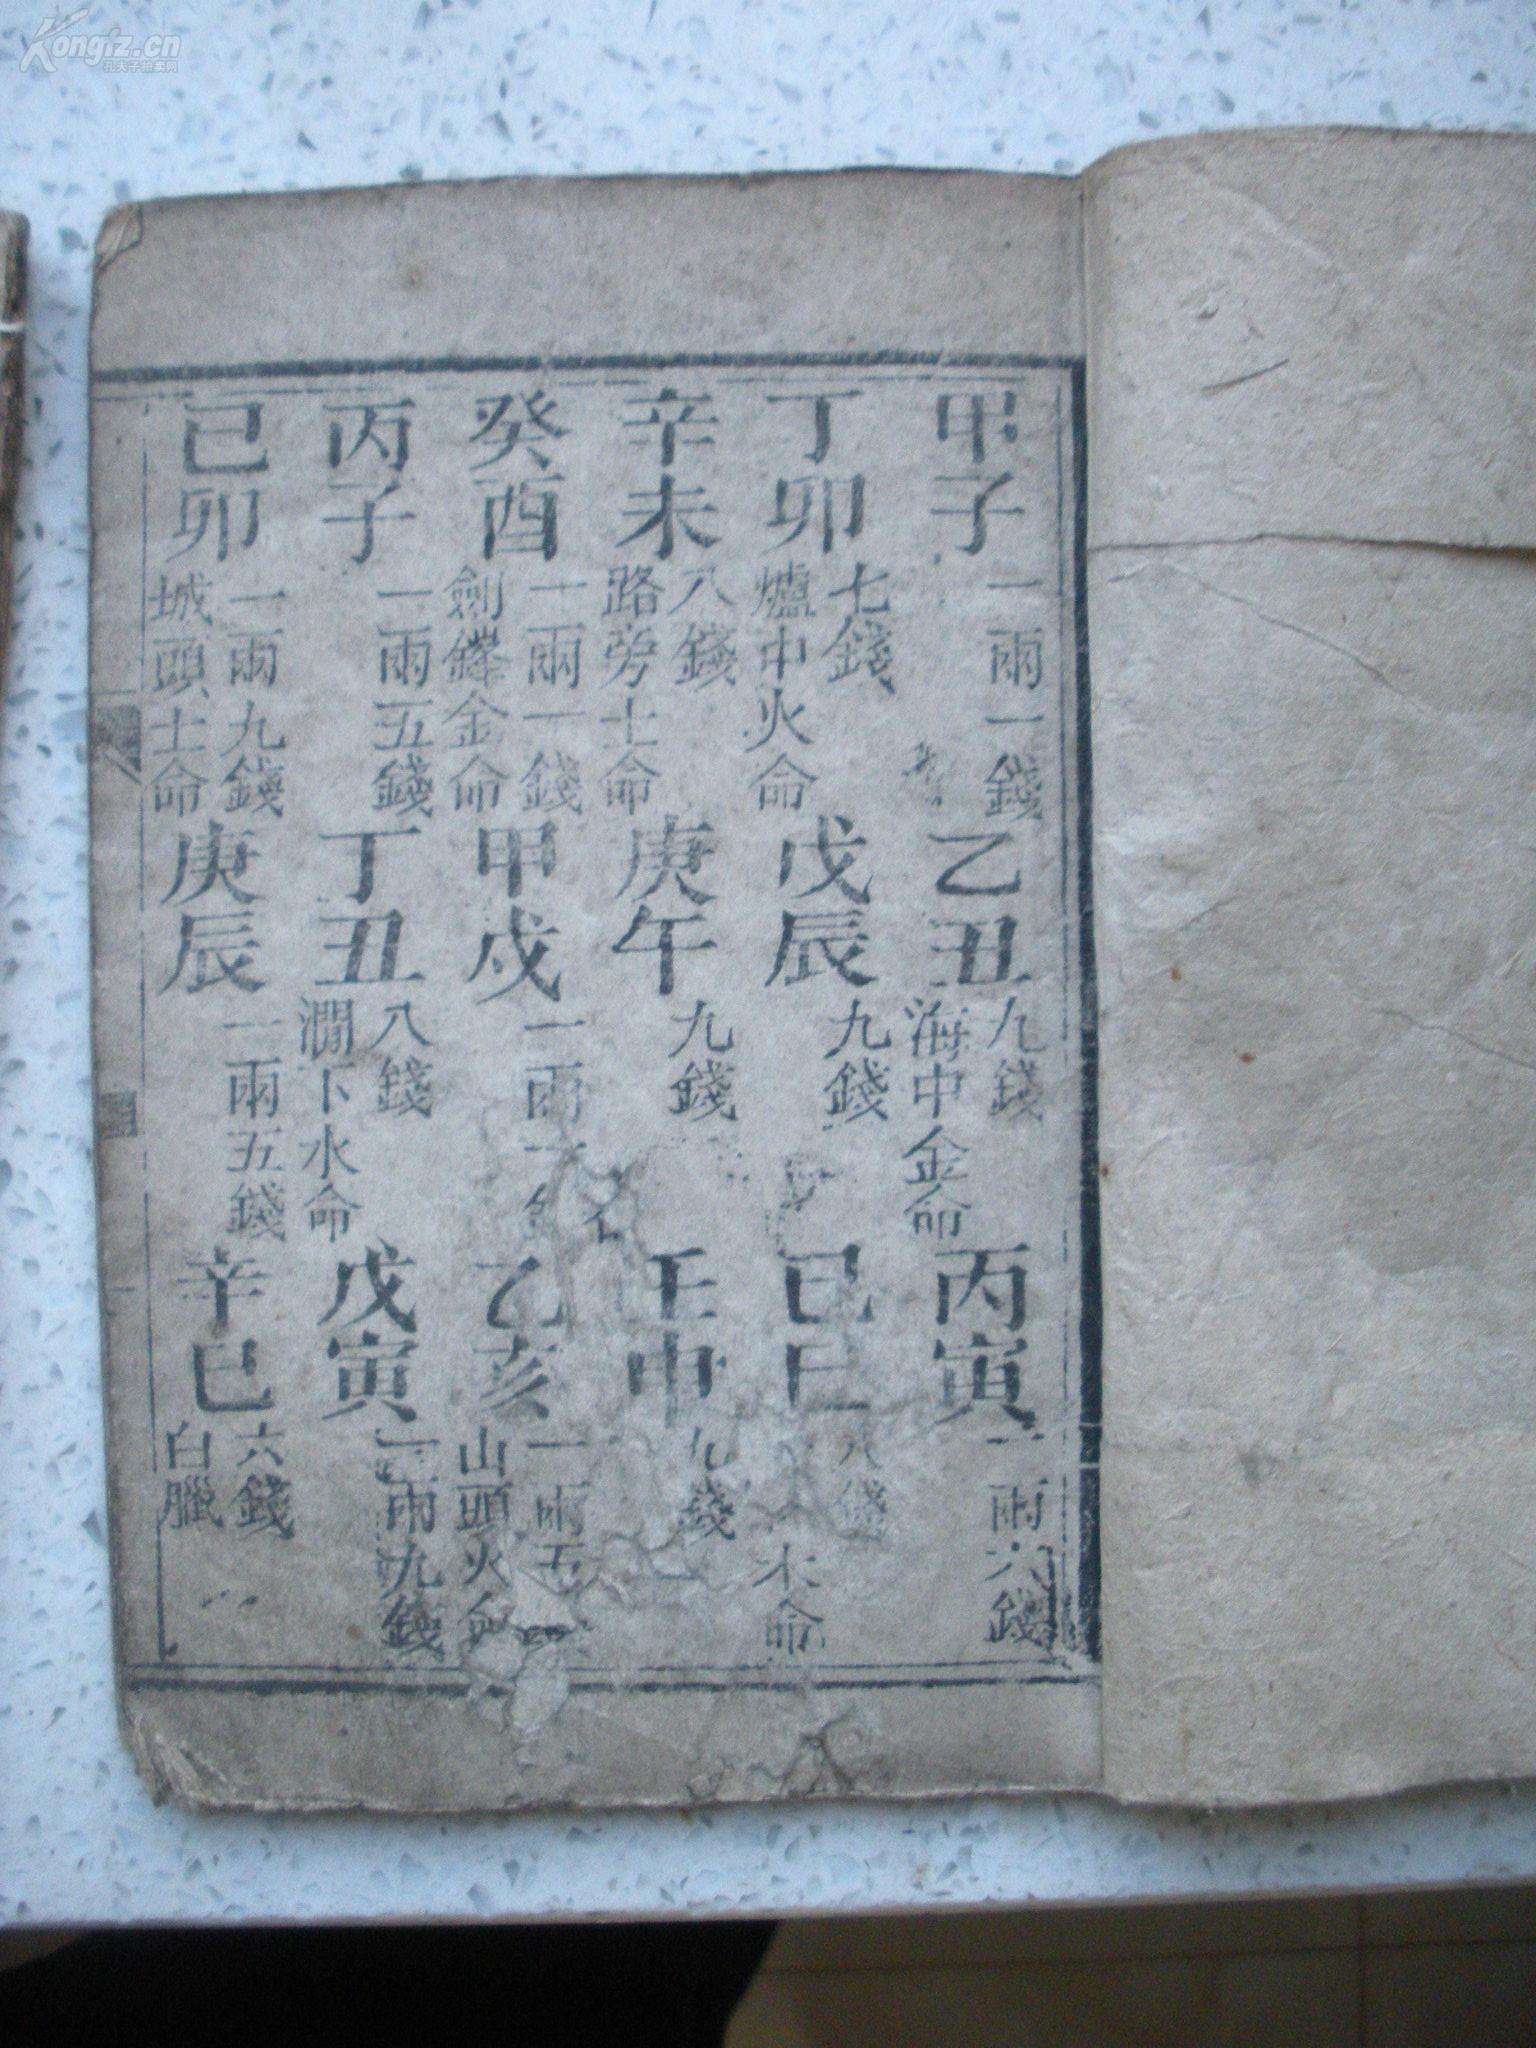 Kongfz.cn
孔夫子拍卖网
甲子 一兩一錢 乙丑 九錢 海中金命 丙寅 一兩六錢
丁卯 七錢 爐中火命 戊辰 九錢 己巳 八錢 木命
辛未 八錢 路旁土命 庚午 九錢 壬申 九錢
癸酉 一兩一錢 劍鋒金命 甲戌 一兩一 乙亥 一兩五 山頭火命
丙子 一兩五錢 丁丑 八錢 澗下水命 戊寅 兩九錢
己卯 一兩九錢 城頭土命 庚辰 一兩五錢 辛巳 六錢 白臘